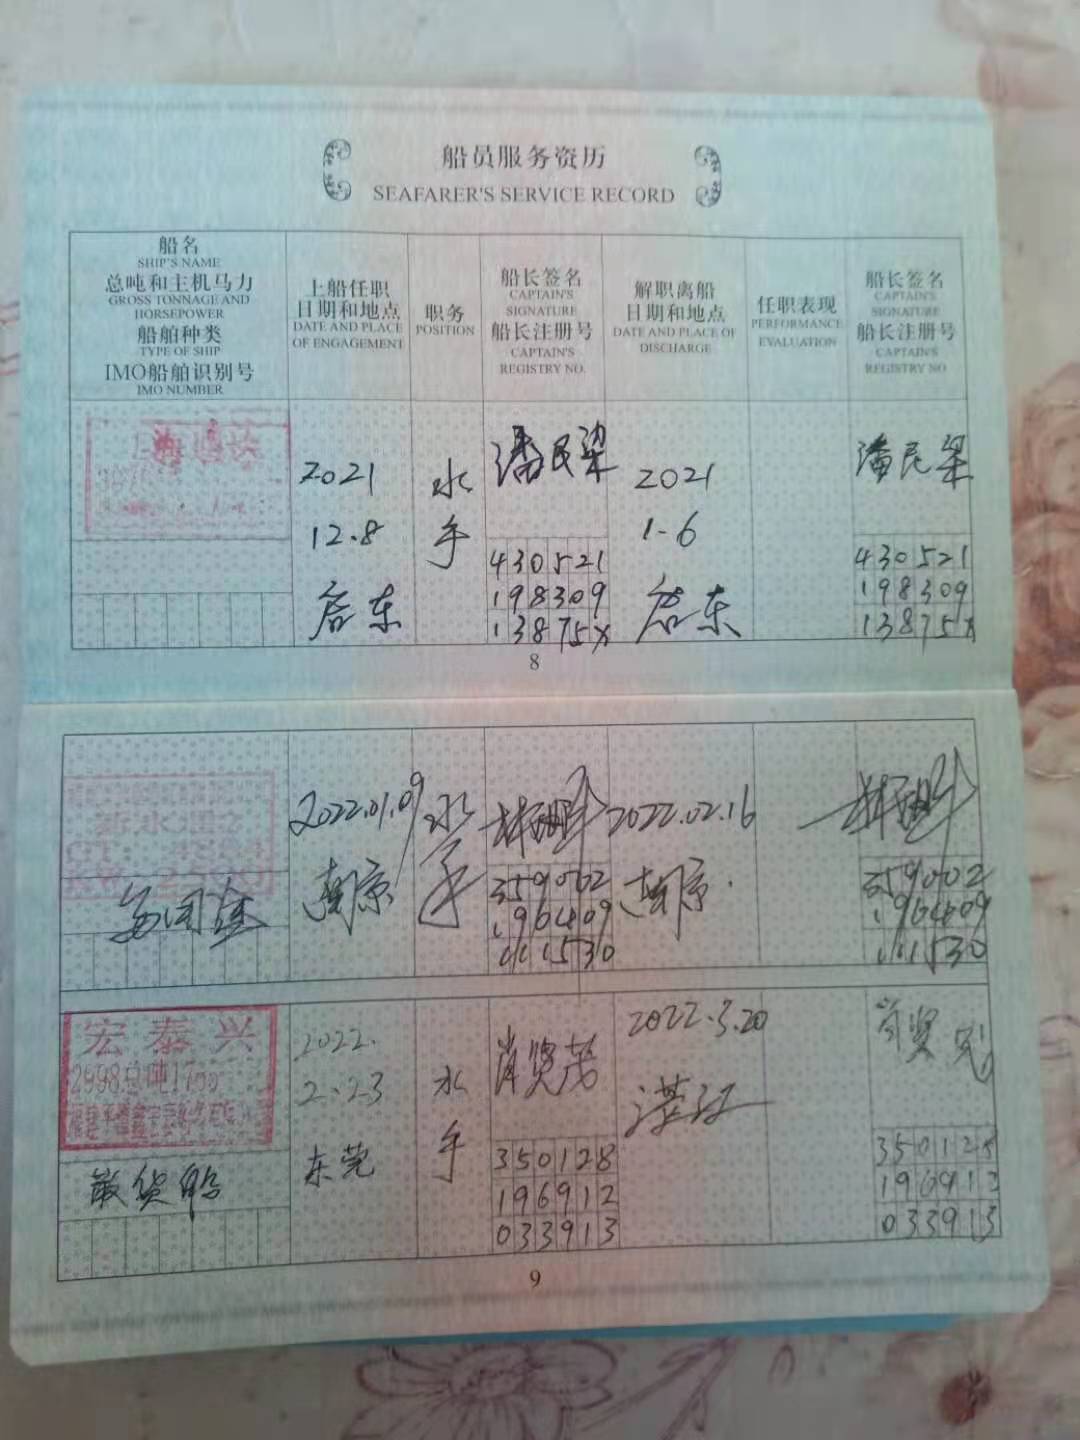 船员服务资历
SEAFARER'S SERVICE RECORD
船名
SHIP'S NAME
总吨和主机马力
GROSS TONNAGE AND
HORSEPOWER
船舶种类
TYPE OF SHIP
IMO船舶识别号
IMO NUMBER
上船任职
日期和地点
DATE AND PLACE
OF ENGAGEMENT
职务
POSITION
船长签名
CAPTAIN'S
SIGNATURE
船长注册号
CAPTAIN'S
REGISTRY NO.
解职离船
日期和地点
DATE AND PLACE OF
DISCHARGE
任职表现
PERFORMANCE
EVALUATION
船长签名
CAPTAIN'S
SIGNATURE
船长注册号
CAPTAIN'S
REGISTRY NO
2021
12.8
启东
水
手
潘民梁
430521
198309
13875X
2021
1-6
启东
潘民梁
430521
198309
13875X
8
2022.01.09
南京
水
手
359002
196409
111530
2022.02.16
南京.
359002
196409
111530
宏泰兴
2998总吨1765
散货船
2022.
2.23
东莞
水
手
肖贤茂
350128
196912
033913
2022.3.20
湛江
肖贤茂
350128
196912
033913
9